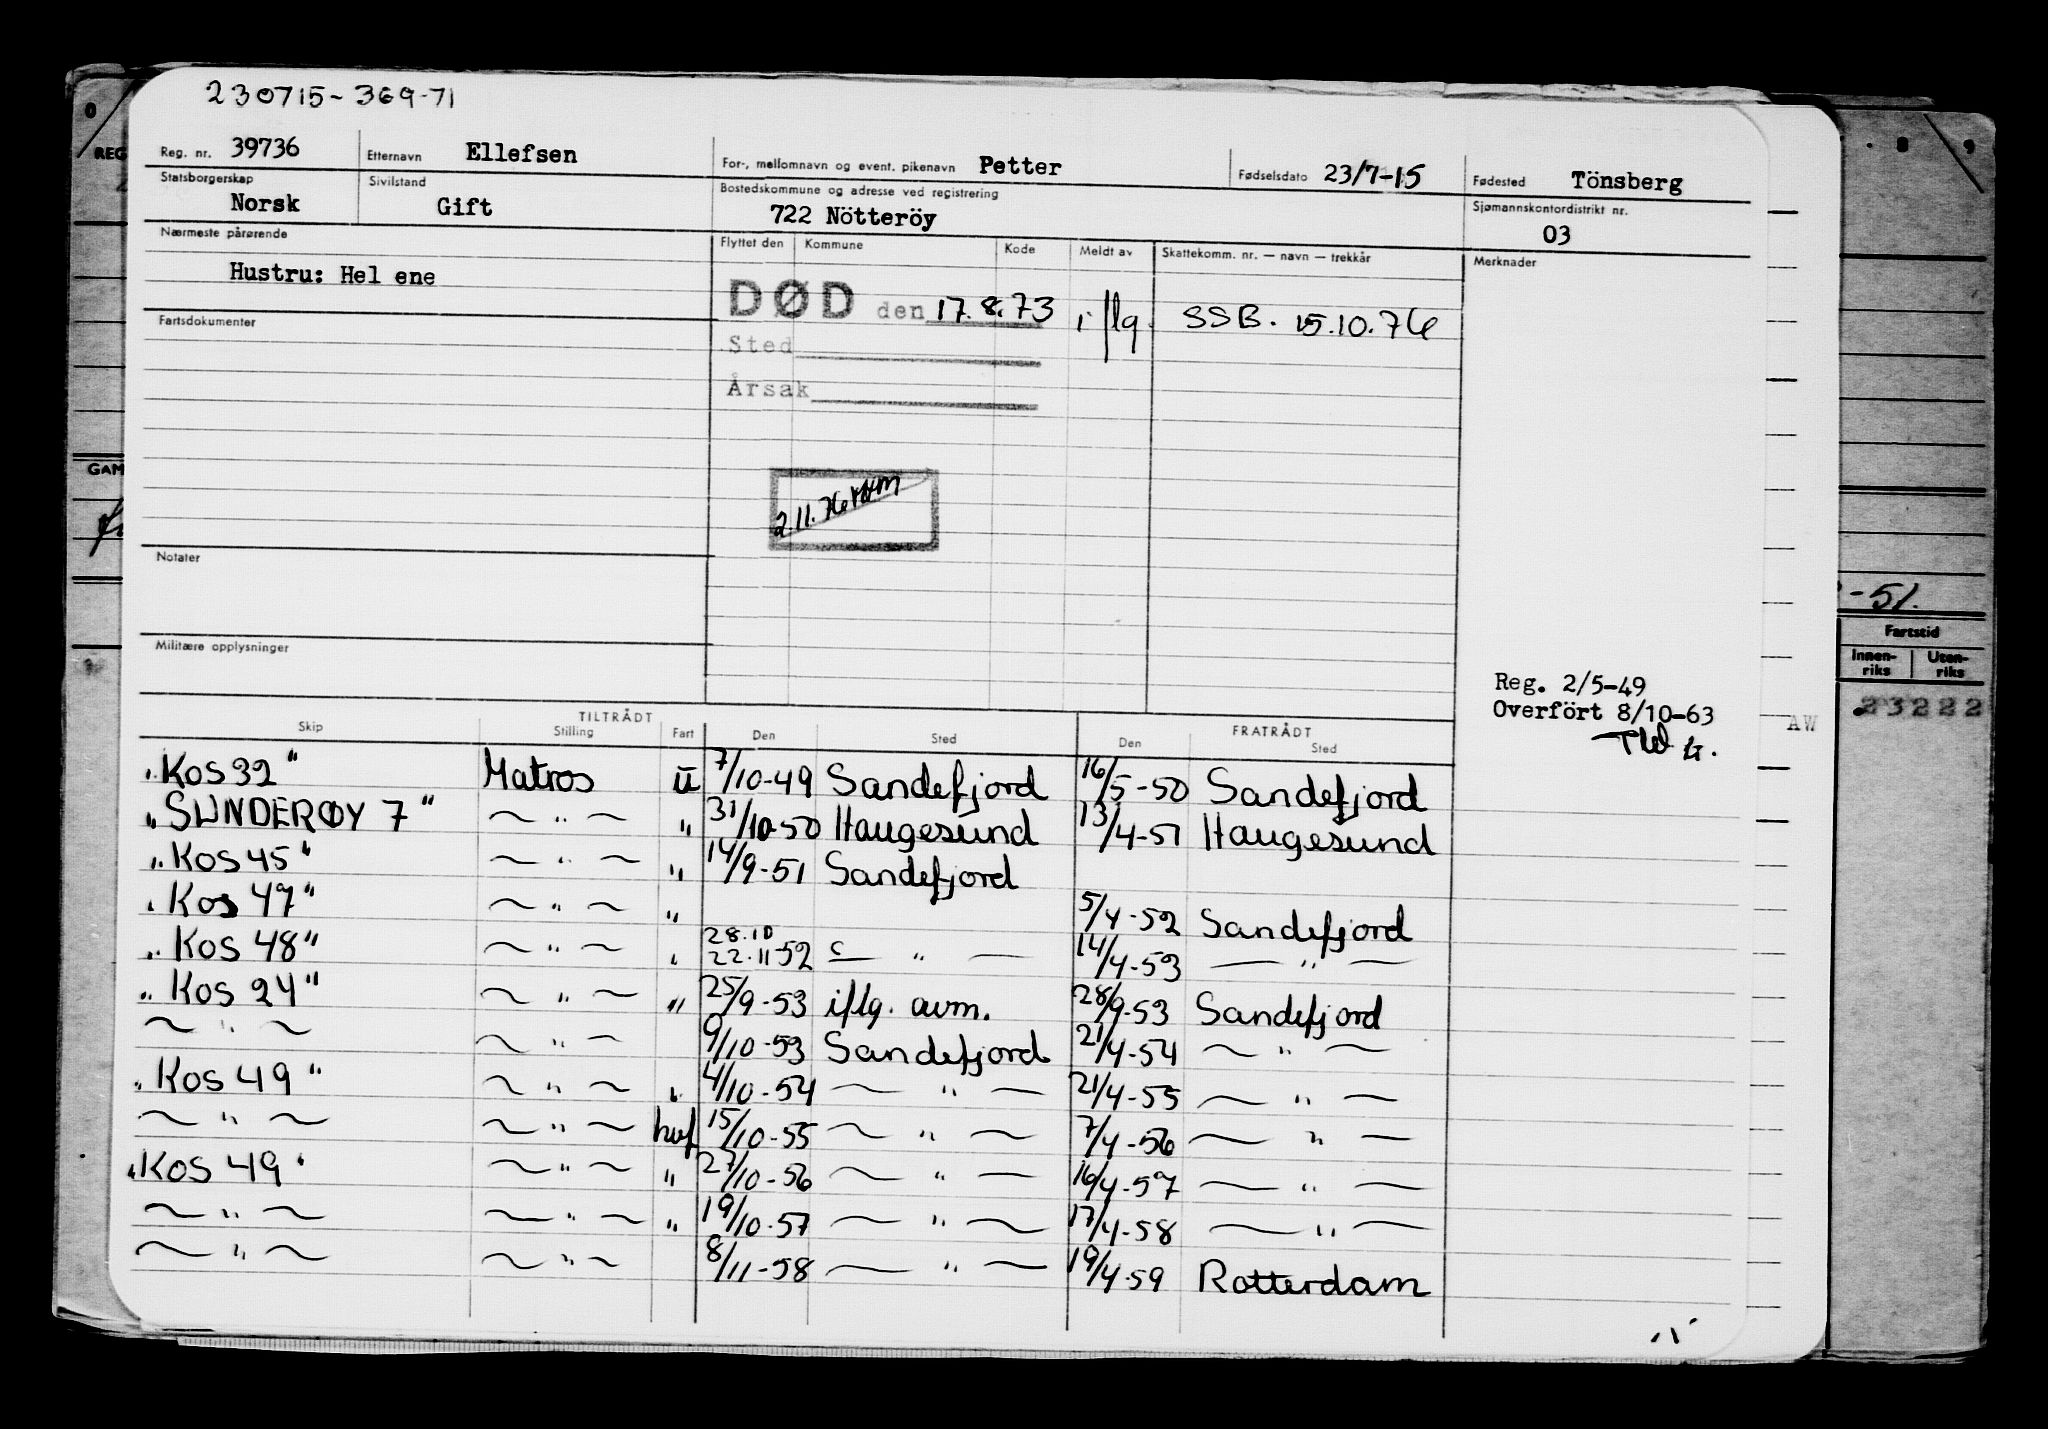 230715-369-71
Reg. nr. 39736 Etternavn Ellefsen For-, mellomnavn og event. pikenavn Petter Fødselsdato 23/7-15 Fødested Tönsberg
Statsborgerskap Norsk Sivilstand Gift Bostedskommune og adresse ved registrering 722 Nötteröy Sjømannskontordistrikt nr. 03
Nærmeste pårørende Flyttet den Kommune Kode Meldt av Skattekomm. nr. — navn — trekkår Merknader
Hustru: Hel ene
DØD den 17.8.73 iflg. SSB. 15.10.76
Fartsdokumenter
Sted
Årsak
2.11.76
Notater
Militære opplysninger
Reg. 2/5-49
Overfört 8/10-63
AW
TILTRÅDT FRATRÅDT
Skip Stilling Fart Den Sted Den Sted
"Kos 32" Matros U 7/10-49 Sandefjord 16/5-50 Sandefjord
"SUNDERØY 7" ~ " ~ " 31/10-50 Haugesund 13/4-51 Haugesund
"Kos 45" ~ " ~ " 14/9-51 Sandefjord
"Kos 47" ~ " ~ " 5/4-52 Sandefjord
"Kos 48" ~ " ~ " 28.10 22.11-52 — " — 14/4-53 — " —
"Kos 24" ~ " ~ " 25/9-53 iflg. avm. 28/9-53 Sandefjord
~ " ~ ~ " ~ 9/10-53 Sandefjord 21/4-54 ~ " ~
"Kos 49" ~ " ~ " 4/10-54 ~ " ~ 21/4-55 ~ " ~
~ " ~ ~ " ~ hvf 15/10-55 ~ " ~ 7/4-56 ~ " ~
"Kos 49" ~ " ~ " 27/10-56 ~ " ~ 16/4-57 ~ " ~
~ " ~ ~ " ~ " 19/10-57 ~ " ~ 17/4-58 ~ " ~
~ " ~ ~ " ~ 8/11-58 ~ " ~ 19/4-59 Rotterdam
0
REG
GAM
8 9
-51.
Fartstid
Innen-riks Uten-riks
23222